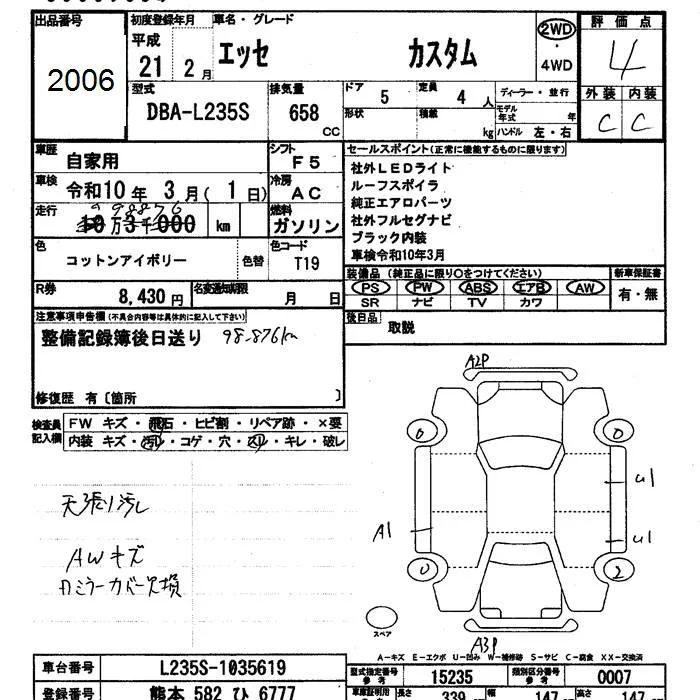 出品番号 初度登録年月 車名・グレード 評価点
2006 平成 21 2月 エッセ カスタム 2WD ・ 4WD 4
型式 排気量 ドア 5 定員 4人 ディーラー・並行 外装 内装
DBA-L235S 658 CC 形状 積載 kg モデル年式 年 ハンドル 左・右 C C
車歴 自家用 シフト F5 セールスポイント(正常に機能するものに限ります)
車検 令和10年 3月( 1日) 冷房 AC 社外LEDライト
ルーフスポイラ
走行 998876 10万3千000 km 燃料 ガソリン 純正エアロパーツ
社外フルセグナビ
色 コットンアイボリー 色替 色コード T19 ブラック内装
車検令和10年3月
R券 8,430円 名変通知期限 月 日 装備品(純正品に限り○をつけてください) 新車保証書
PS PW ABS エアB AW 有・無
SR ナビ TV カワ
注意事項申告欄(不具合内容等は具体的に記入して下さい) 後日品 取説
整備記録簿後日送り 98.876km
修復歴 有〔箇所 〕
検査員記入欄 FW キズ・飛石・ヒビ割・リペア跡・×要
内装 キズ・汚レ・コゲ・穴・スレ・キレ・破レ
A2P
0 0
天張り汚レ U1
A1 U1
AWキズ
カミラーカバー欠損 0 2
スペア
A3P
A-キズ E-エクボ U-凹み W-補修跡 S-サビ C-腐食 XX-交換済
車台番号 L235S-1035619 型式指定番号 参考 15235 類別区分番号 参考 0007
登録番号 熊本 582 ひ 6777 車庫証明用 参考 長さ 339 幅 147 高さ 147